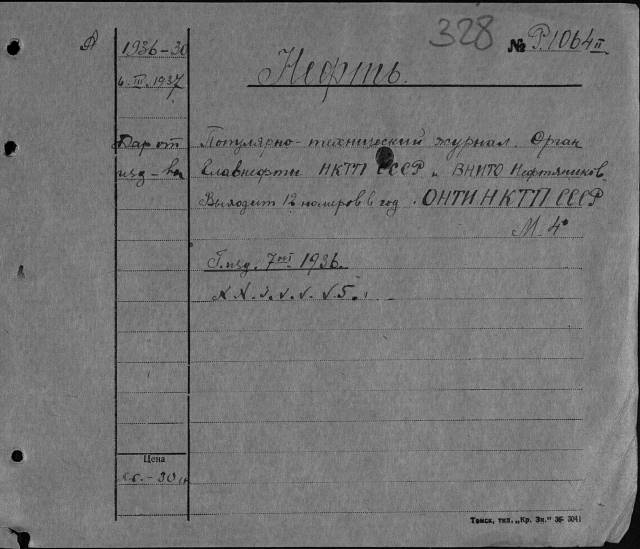 328
№ Р.1064 II
1936-30
6.III.1937
Нефть.
Дар от
изд-ва
Популярно-технический журнал. Орган
Главнефти НКТП СССР и ВНИТО Нефтяников.
Выходит 12 номеров в год. ОНТИ НКТП СССР
М. 4°
Г. изд. 7ой 1936.
Цена
Томск, тип. „Кр. Зн." 36- 3041